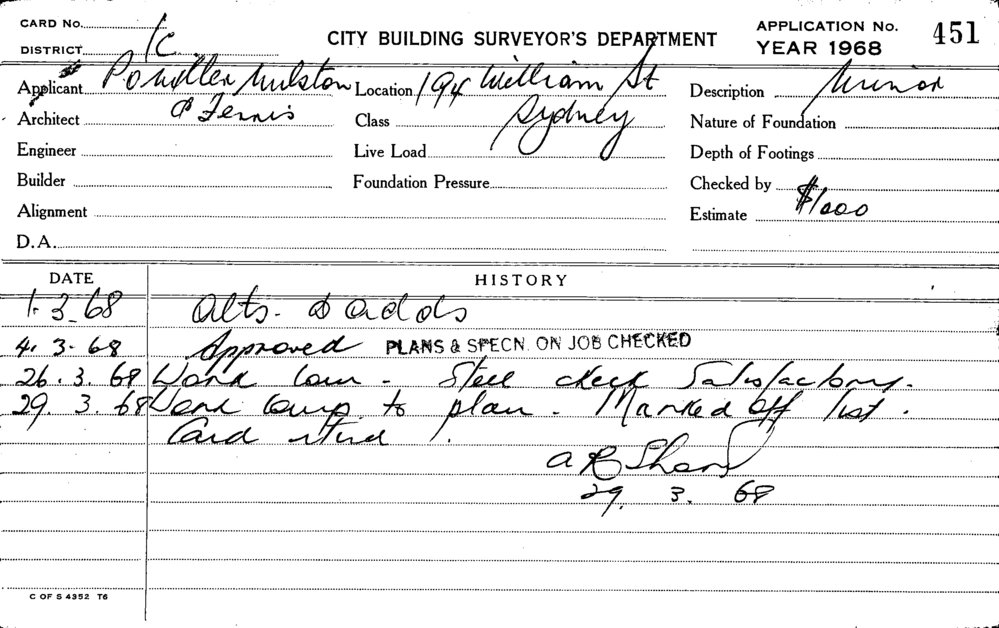 CARD No.
DISTRICT 1C
CITY BUILDING SURVEYOR'S DEPARTMENT
APPLICATION No. 451
YEAR 1968
Applicant
Location 194 William St
Description Minor
Architect & Ferris
Class Sydney
Nature of Foundation
Engineer
Live Load
Depth of Footings
Builder
Foundation Pressure
Checked by
Alignment
Estimate $1000
D.A.
DATE HISTORY
1.3.68 Alts. & adds
4.3.68 Approved PLANS & SPECN. ON JOB CHECKED
26.3.68 Work com - Steel check Satisfactory.
29.3.68 Work comp. to plan. Marked off list.
Card
29.3.68
C OF S 4352 T6